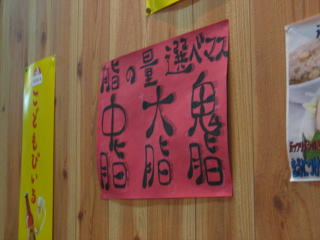 脂の量選べマス
鬼脂
大脂
中脂
こどもびいる